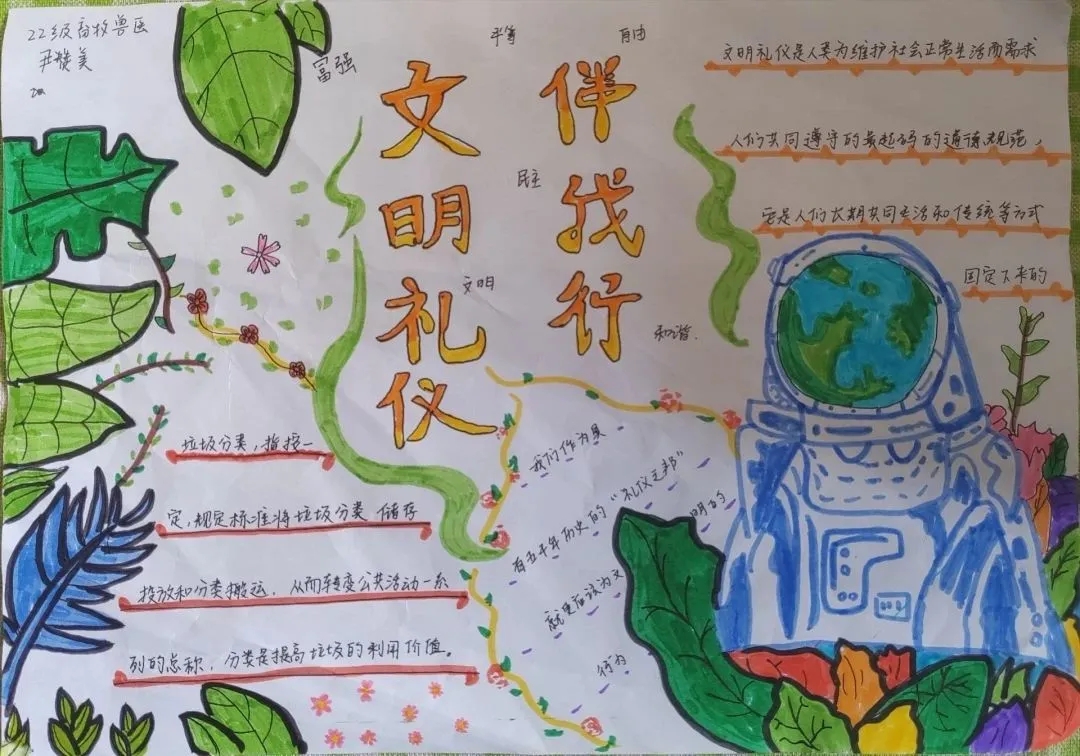 22级畜牧兽医
尹赞美
富强
平等
自由
民主
文明
和谐.
文明礼仪
伴我行
文明礼仪是人类为维护社会正常生活而需求
人们共同遵守的最起码的道德规范,
它是人们长期共同生活和传统等方式
固定下来的
垃圾分类,指按一
定,规定标准将垃圾分类 储存
投放和分类搬运,从而转变公共活动一系
列的总称,分类是提高垃圾的利用价值。
我们作为具
有五千年历史的“礼仪之邦”
就更应该为文明的
行为